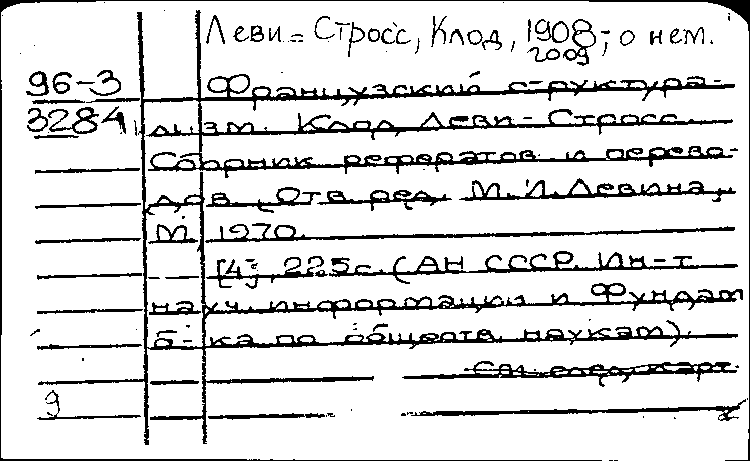 Леви-Стросс, Клод, 1908-; о нем.
2009
96-3 Французский структура-
3284 лизм. Клод Леви-Стросс.
Сборник рефератов и перево-
дов. (Отв. ред. М. И. Левина),
М. 1970.
[4], 225с. (АН СССР. Ин-т
науч. информации и Фундам
б-ка по обществ. наукам).
См. след. карт.
9